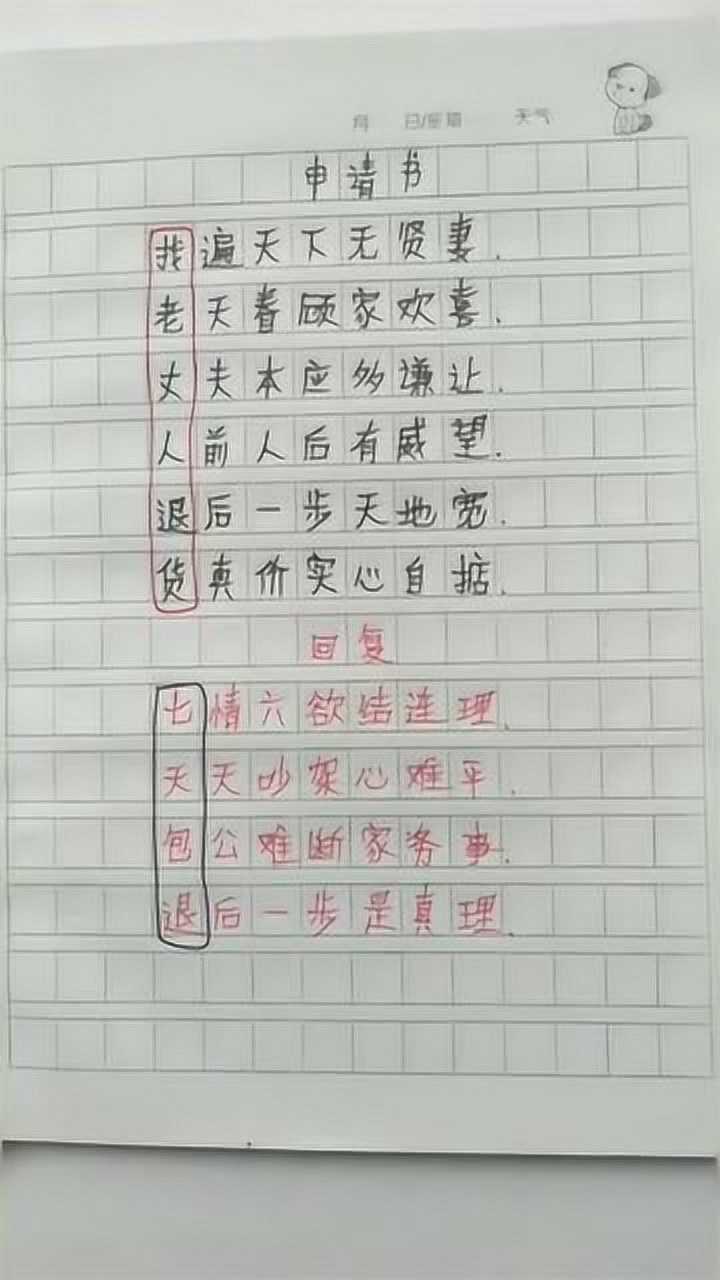 月 日/星期 天气
申请书
找遍天下无贤妻.
老天眷顾家欢喜.
丈夫本应多谦让.
人前人后有威望.
退后一步天地宽.
货真价实心自掂.
回复
七情六欲结连理.
天天吵架心难平.
包公难断家务事.
退后一步是真理.